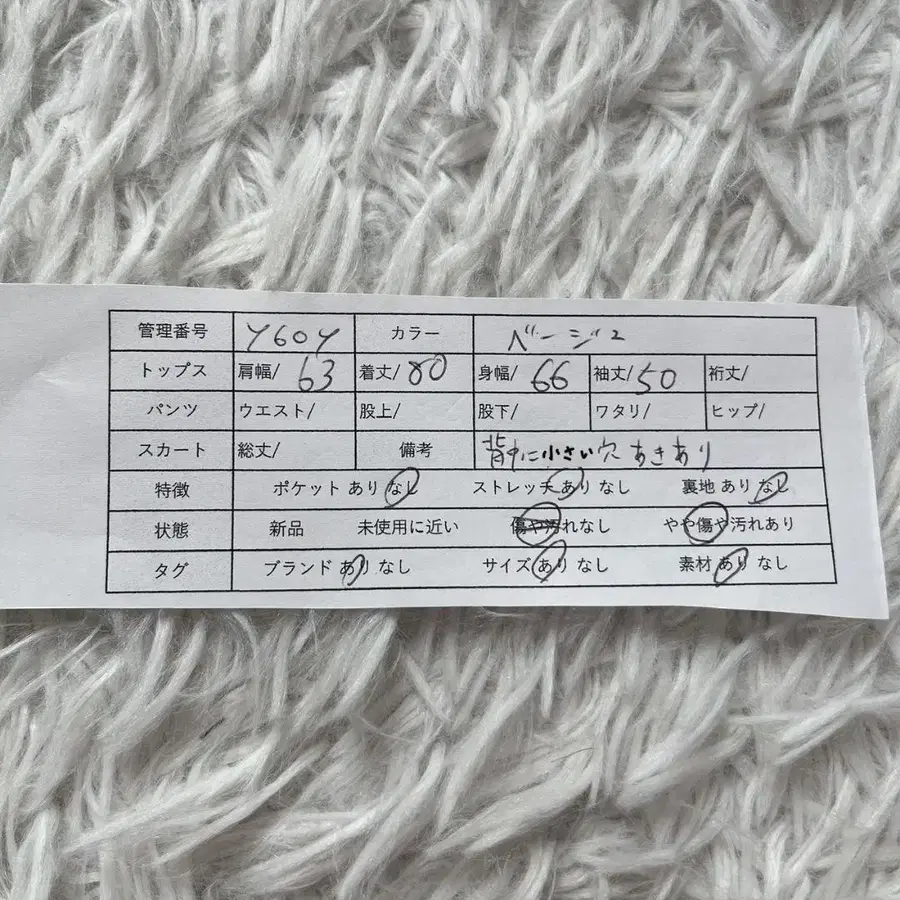 管理番号 Y60Y カラー ベージュ
トップス 肩幅/ 63 着丈/ 80 身幅/ 66 袖丈/ 50 裄丈/
パンツ ウエスト/ 股上/ 股下/ ワタリ/ ヒップ/
スカート 総丈/ 備考 背中に小さい穴あきあり
特徴 ポケット あり なし ストレッチ あり なし 裏地 あり なし
状態 新品 未使用に近い 傷や汚れなし やや傷や汚れあり
タグ ブランド あり なし サイズ あり なし 素材 あり なし